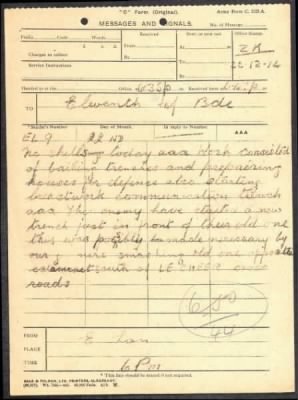 "C" Form (Original). Army Form C. 2123 A.
MESSAGES AND SIGNALS. No. of Message
Prefix Code Words Received Sent, or sent out Office Stamp.
Charges to collect
Service Instructions
22.12.14
Handed in at the Office at 6.35 p.m. Received here at
TO Eleventh Inf Bde
*Sender's Number Day of Month In reply to Number AAA
EL 9 22ND
No shelling today aaa Work consisted
of bailing trenches and preparing
houses for defence also starting
breastwork communication trench
aaa The enemy have started a new
trench just in front of their old one
this was possibly made necessary by
our mine smashing old one opposite
south of LE GHEER cross
roads
6.50
FROM E Lan
PLACE
TIME 6 Pm
*This line should be erased if not required.